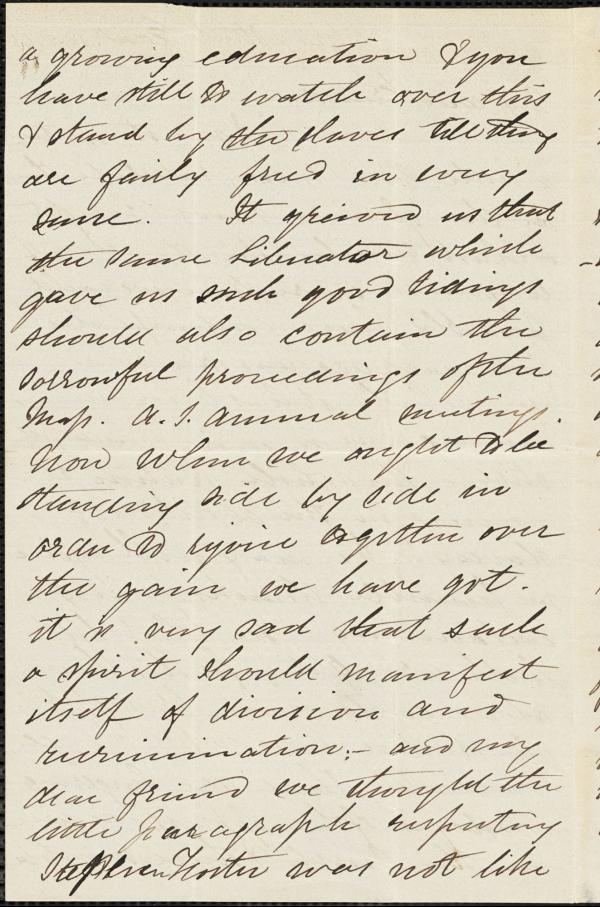 a growing education & you
have still to watch over this
& stand by the slaves till they
are fairly freed in every
sense. It grieved us that
the same Liberator which
gave us such good tidings
should also contain the
sorrowful proceedings of the
Mass. A.S. annual meetings.
Now when we ought to be
standing side by side in
order to rejoice together over
the gain we have got.
it is very sad that such
a spirit should manifest
itself of division and
recrimination:- and my
dear friend we thought the
little paragraph respecting
Stephen Foster was not like